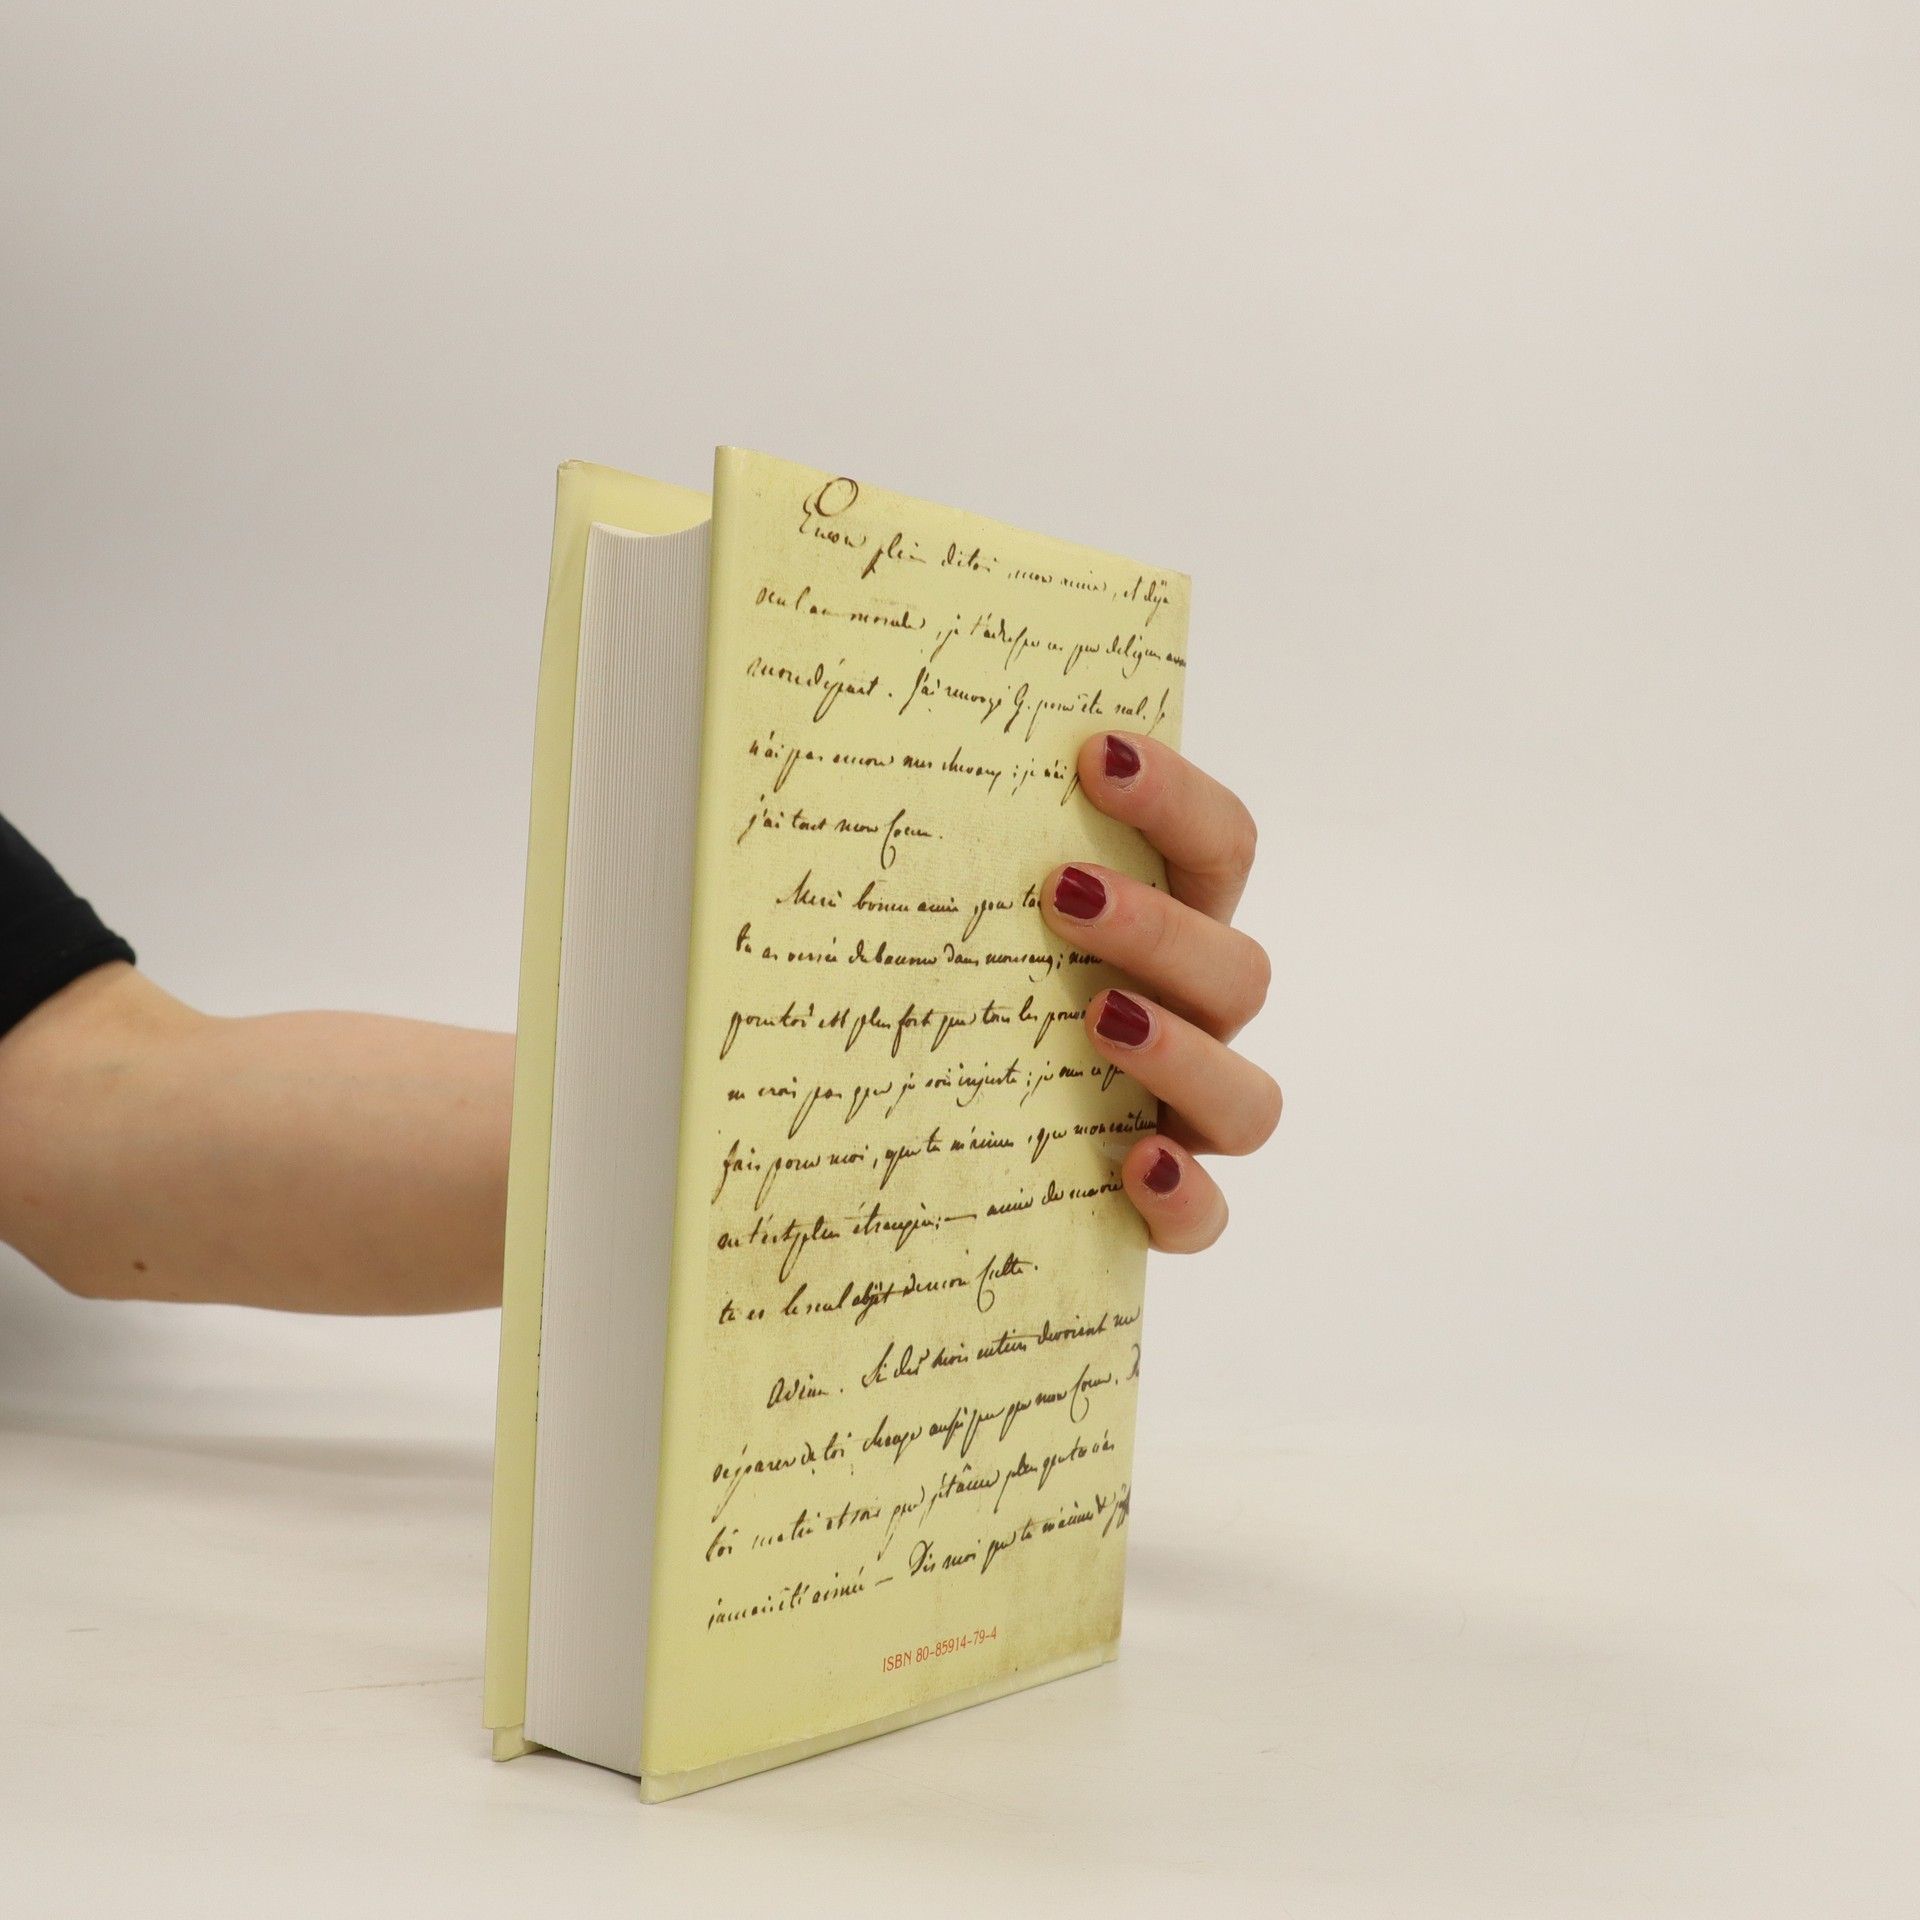 Encore plein de toi, mon amie, et déja
seul au monde, je t'adresse ce peu de lignes avant
mon départ. J'ai renvoyé G. pour être seul. Je
n'ai pas encore mes chevaux; je n'ai
j'ai tout mon Coeur.
Merci bonne amie, que
tu as versée de baume dans mon sang; mon
pour toi est plus fort que tous les
ne crois pas que je sois injuste; je sens ce que
fais pour moi, que tu m'aimes, que mon
ne t'est plus étrangère; — amie de ma vie
tu es le seul objet de mon Culte.
Adieu. Si des mois entiers devoient me
séparer de toi change aussi peu que mon Coeur.
toi que je t'aime plus que tu n'as
jamais été aimée — Dis moi que tu m'aimes &
ISBN 80-85914-79-4